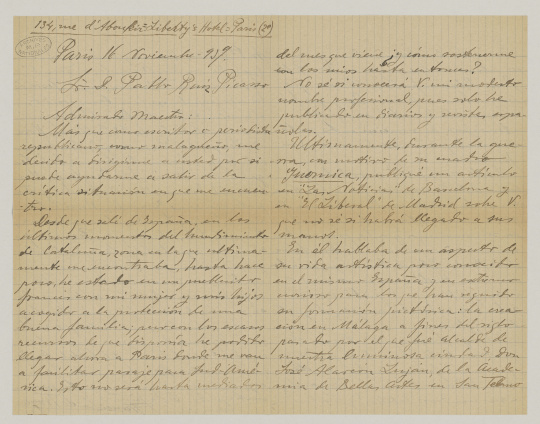 134, rue d'Aboukir - Liberty's Hotel - Paris (2e)
Paris 16 Noviembre - 939
Sr. D. Pablo Ruiz Picasso
Admirado Maestro:
Más que como escritor o periodista
republicano, como malagueño, me
decido a dirigirme a usted por si
puede ayudarme a salir de la
crítica situación en que me encuen-
tro.
Desde que salí de España, en los
últimos momentos del hundimiento
de Cataluña, zona en la que última-
mente me encontraba, hasta hace
poco, he estado en un pueblecito
francés con mi mujer y mis hijos
acogido a la protección de una
buena familia, pero con los escasos
recursos de que disponía he podido
llegar ahora a París donde me van
a facilitar pasaje para Sud-Amé-
rica. Esto no será hasta mediados
del mes que viene ¿y cómo sostenerme
con los míos hasta entonces?
No sé si conocerá V. mi modesto
nombre profesional, pues sólo he
publicado en diarios y revistas espa-
ñolas.
Ultimamente, durante la gue-
rra, con motivo de su cuadro
Guernica, publiqué un artículo
en "Las Noticias" de Barcelona y
en "El Liberal" de Madrid sobre V.
que no sé si habrá llegado a sus
manos.
En él hablaba de un aspecto de
su vida artística poco conocido
en el mismo España y en extremo
curioso para los que han seguido
su formación pictórica: la crea-
ción en Málaga a fines del siglo
pasado por el que fué alcalde de
nuestra luminosa ciudad, Don
José Alarcón Luján, de la Acade-
mia de Bellas Artes en San Telmo